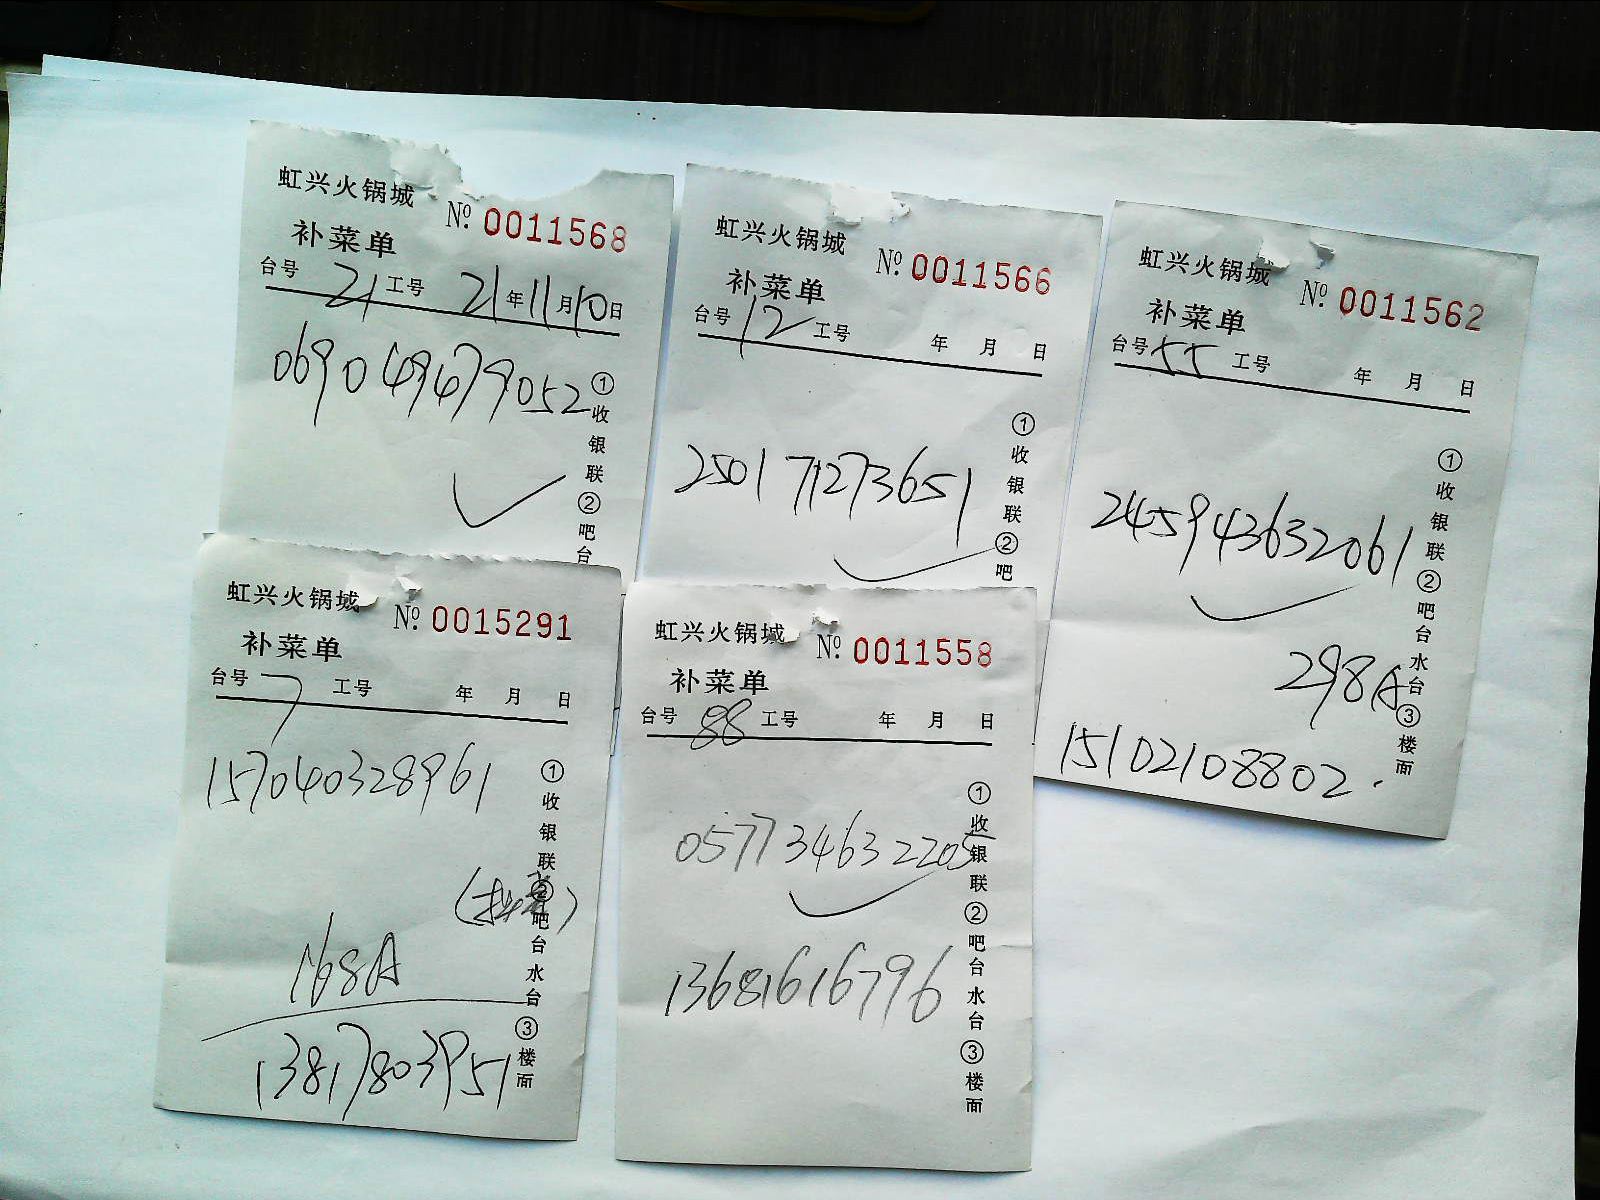 虹兴火锅城
№ 0011568
补菜单
台号 21 工号 21年11月10日
069049479052
①收银联②吧台
虹兴火锅城
№ 0011566
补菜单
台号 12 工号 年 月 日
250171273651
①收银联②吧
虹兴火锅城
№ 0011562
补菜单
台号 55 工号 年 月 日
245943632061
298A
15102108802.
①收银联②吧台水台③楼面
虹兴火锅城
№ 0015291
补菜单
台号 7 工号 年 月 日
157040328961
168A
13817803951
①收银联②吧台水台③楼面
虹兴火锅城
№ 0011558
补菜单
台号 88 工号 年 月 日
057734632205
13681616796
①收银联②吧台水台③楼面